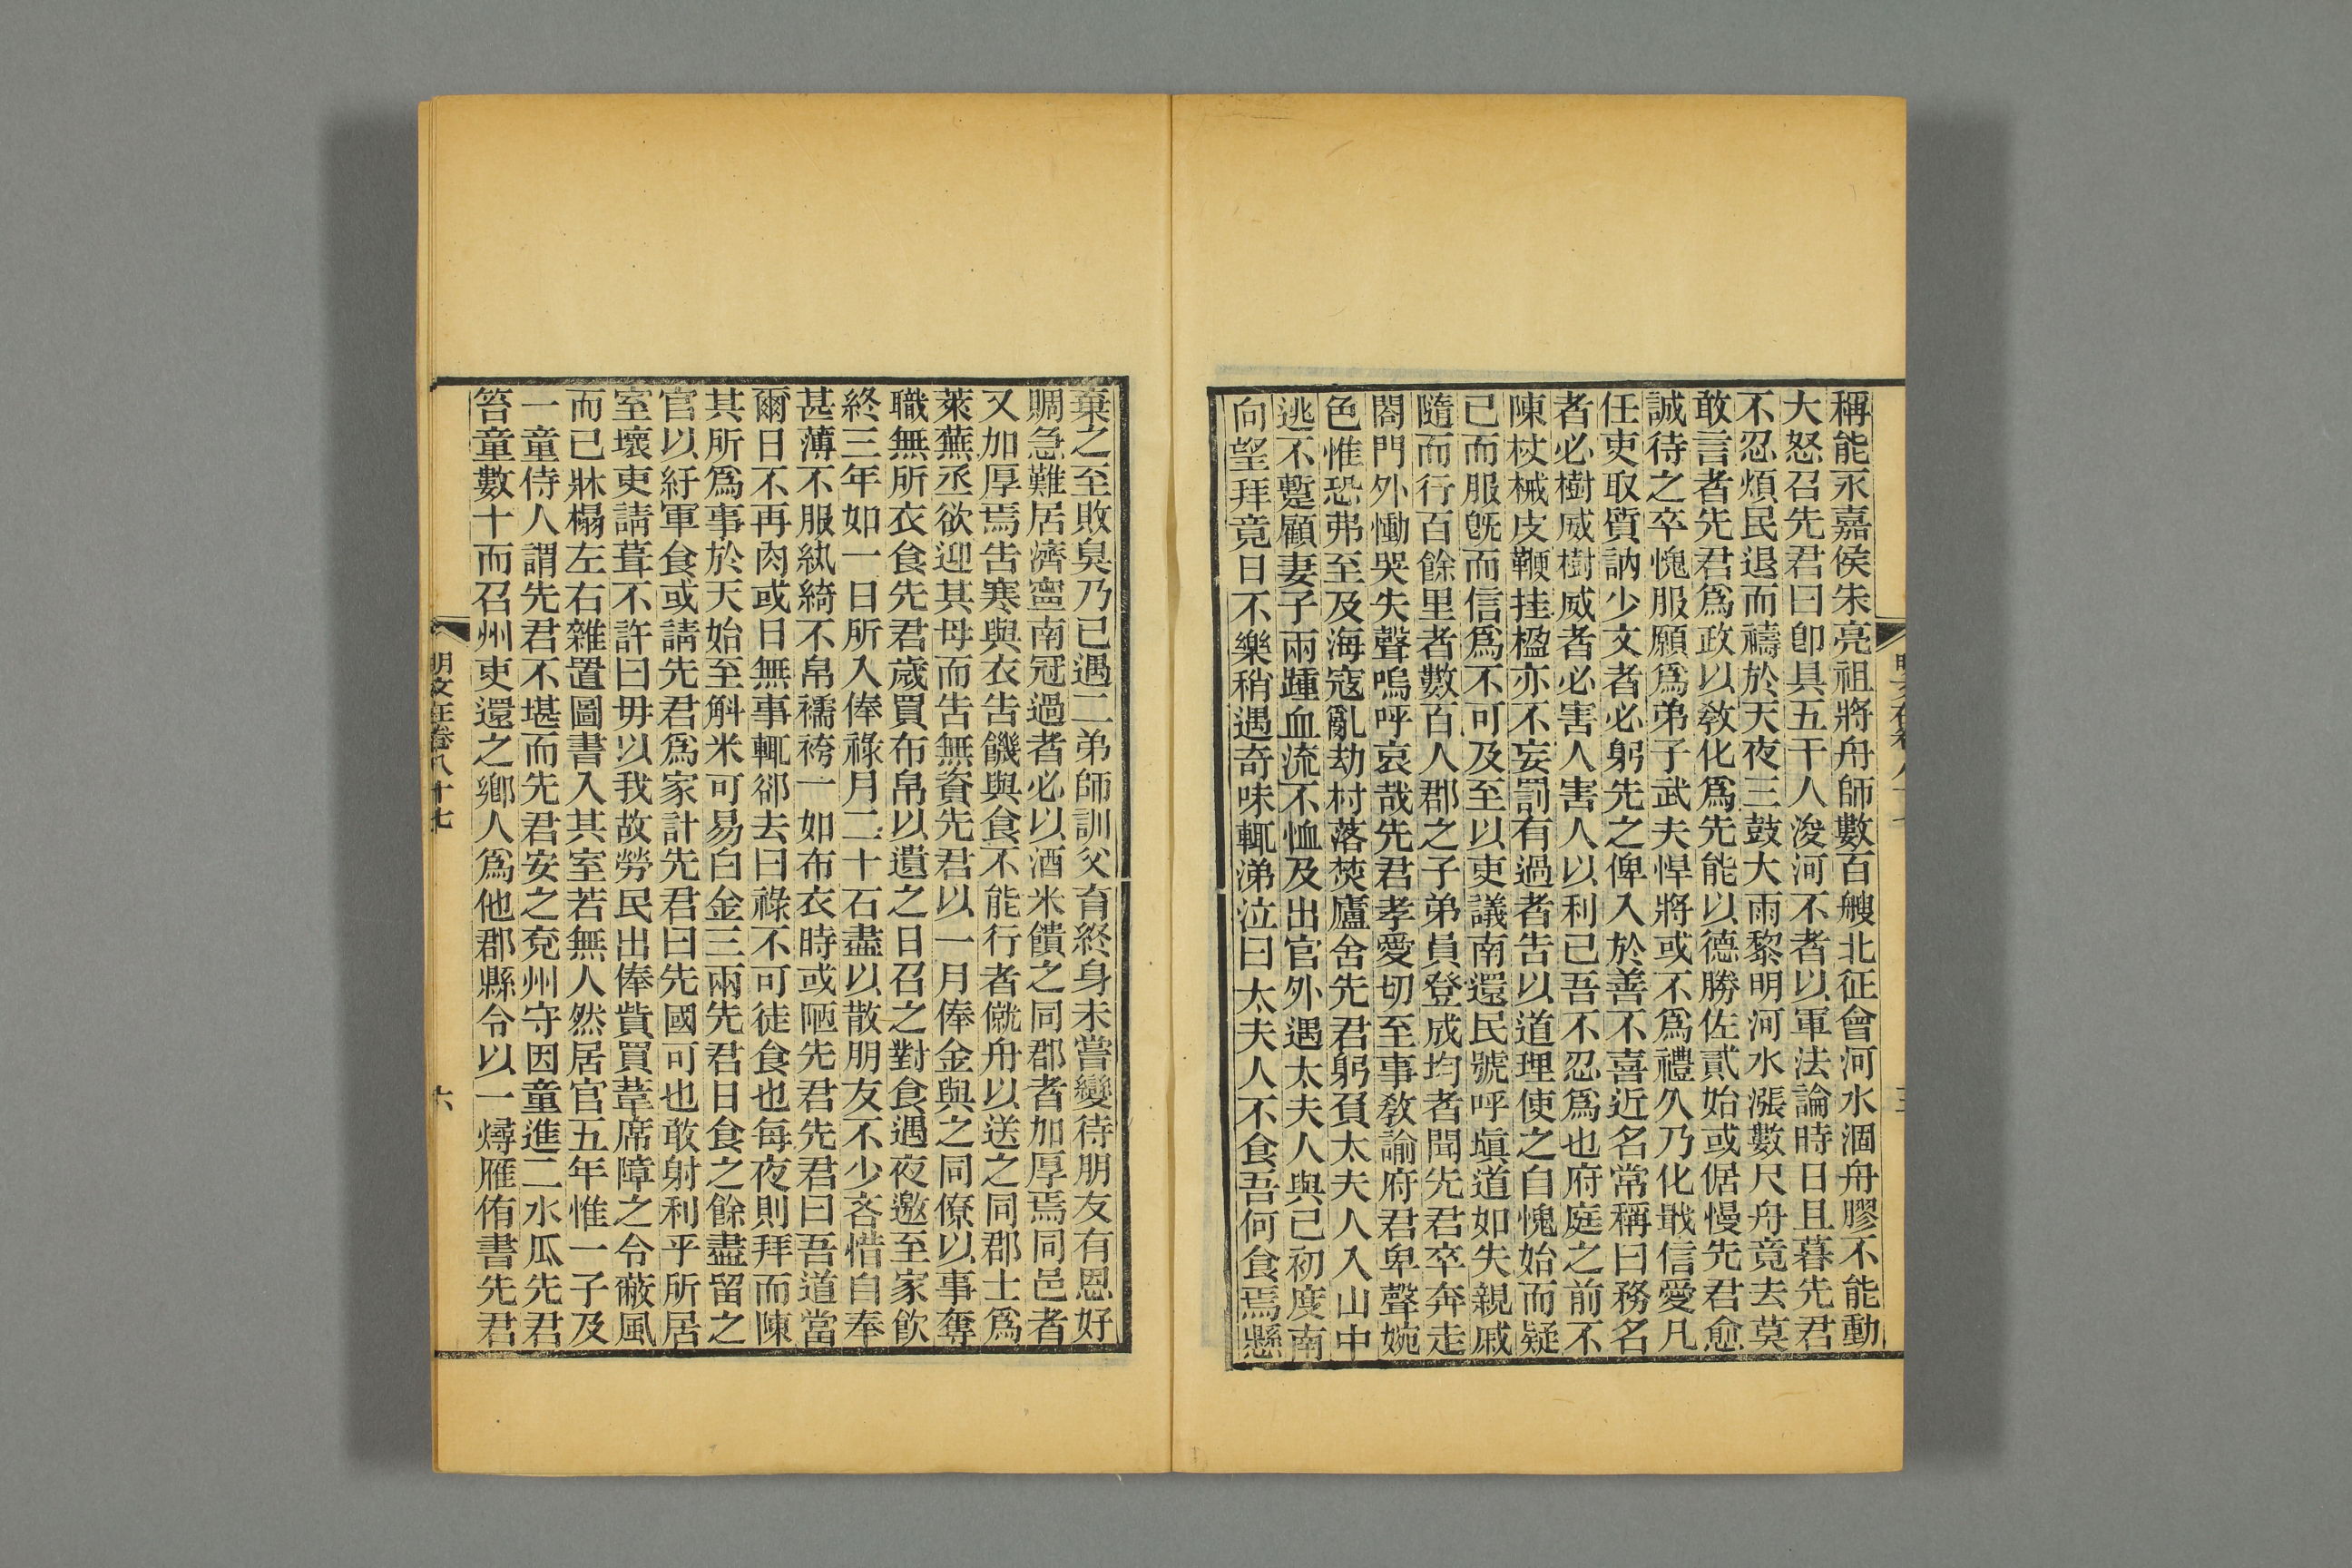 稱能永嘉侯朱亮祖將舟師數百艘北征會河水涸舟膠不能動
大怒召先君曰卽具五千人浚河不者以軍法論時日且暮先君
不忍煩民退而禱於天夜三鼓大雨黎明河水漲數尺舟竟去莫
敢言者先君爲政以敎化爲先能以德勝佐貳始或倨慢先君愈
誠待之卒愧服願爲弟子武夫悍將或不爲禮久乃化戢信愛凡
任吏取質訥少文者必躬先之俾入於善不喜近名常稱曰務名
者必樹威樹威者必害人害人以利己吾不忍爲也府庭之前不
陳杖械皮鞭挂楹亦不妄罰有過者告以道理使之自愧始而疑
已而服旣而信爲不可及至以吏議南還民號呼塡道如失親戚
隨而行百餘里者數百人郡之子弟員登成均者聞先君卒奔走
閤門外慟哭失聲嗚呼哀哉先君孝愛切至事敎諭府君卑聲婉
色惟恐弗至及海寇亂劫村落焚廬舍先君躬負太夫人入山中
逃不蹔顧妻子兩踵血流不恤及出官外遇太夫人與己初度南
向望拜竟日不樂稍遇奇味輒涕泣曰太夫人不食吾何食焉懸
棄之至敗臭乃已遇二弟師訓父育終身未嘗變待朋友有恩好
賙急難居濟寧南冠過者必以酒米饋之同郡者加厚焉同邑者
又加厚焉告寒與衣告饑與食不能行者僦舟以送之同郡士爲
萊蕪丞欲迎其母而告無資先君以一月俸金與之同僚以事奪
職無所衣食先君歲買布帛以遺之日召之對食遇夜邀至家飮
終三年如一日所入俸祿月二十石盡以散朋友不少吝惜自奉
甚薄不服紈綺不帛襦袴一如布衣時或陋先君先君曰吾道當
爾日不再肉或日無事輒郤去曰祿不可徒食也每夜則拜而陳
其所爲事於天始至斛米可易白金三兩先君日食之餘盡留之
官以紓軍食或請先君爲家計先君曰先國可也敢射利乎所居
室壞吏請葺不許曰毋以我故勞民出俸貲買葦席障之令蔽風
而已牀榻左右雜置圖書入其室若無人然居官五年惟一子及
一童侍人謂先君不堪而先君安之兗州守因童進二水瓜先君
笞童數十而召州吏還之鄉人爲他郡縣令以一燖雁侑書先君
明文在卷八十七
六